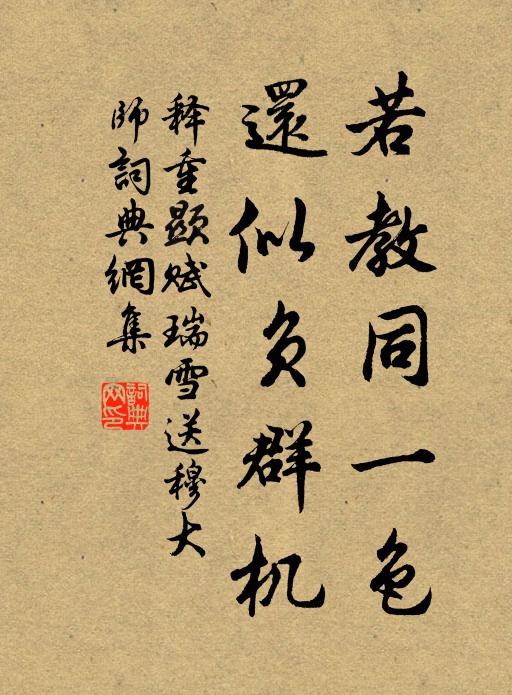 若教同一色
還似負群机
释重显赋瑞雪送穆大
師詞典網集
詞典网印